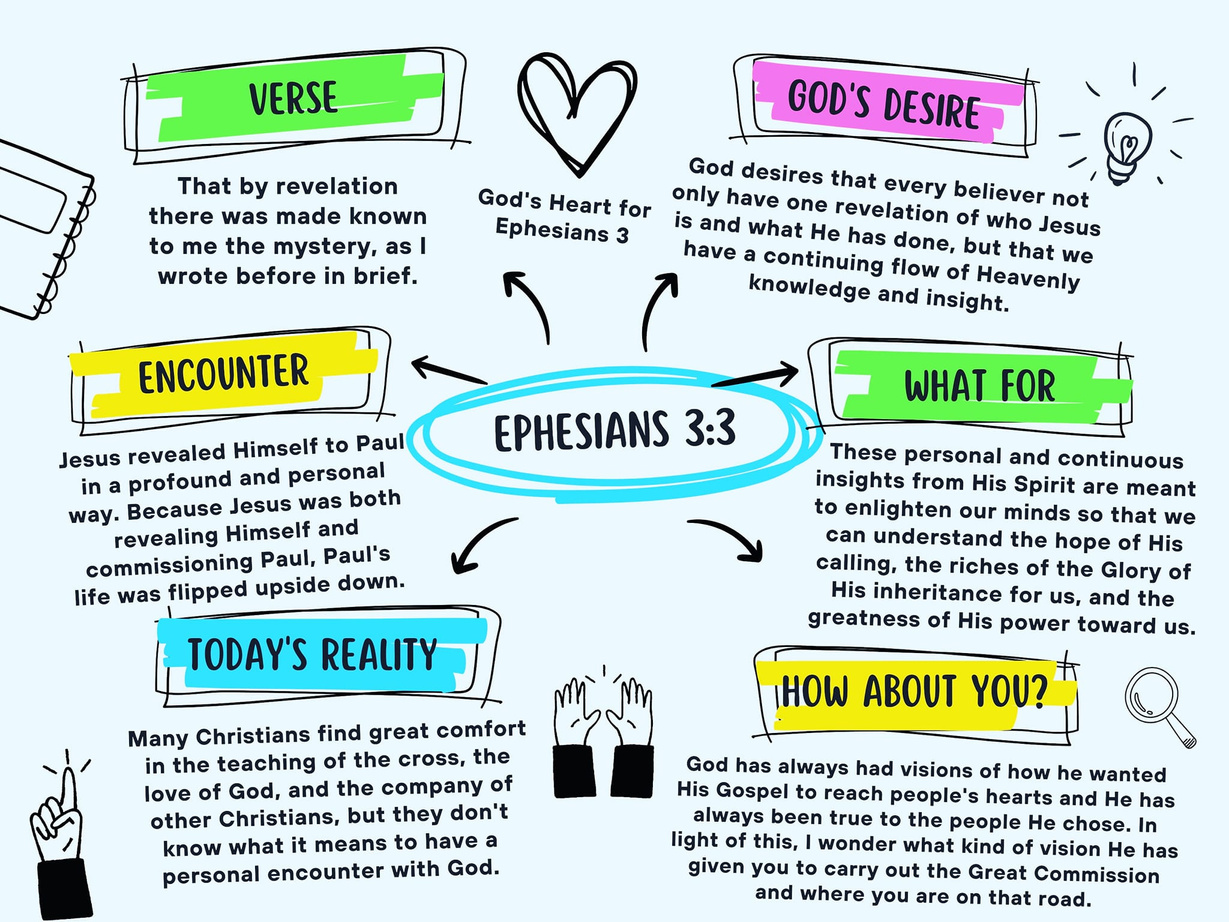 VERSE
That by revelation
there was made known
to me the mystery, as I
wrote before in brief.
God's Heart for
Ephesians 3
GOD'S DESIRE
God desires that every believer not
only have one revelation of who Jesus
is and what He has done, but that we
have a continuing flow of Heavenly
knowledge and insight.
ENCOUNTER
Jesus revealed Himself to Paul
in a profound and personal
way. Because Jesus was both
revealing Himself and
commissioning Paul, Paul's
life was flipped upside down.
EPHESIANS 3:3
WHAT FOR
These personal and continuous
insights from His Spirit are meant
to enlighten our minds so that we
can understand the hope of His
calling, the riches of the Glory of
His inheritance for us, and the
greatness of His power toward us.
TODAY'S REALITY
Many Christians find great comfort
in the teaching of the cross, the
love of God, and the company of
other Christians, but they don't
know what it means to have a
personal encounter with God.
HOW ABOUT YOU?
God has always had visions of how he wanted
His Gospel to reach people's hearts and He has
always been true to the people He chose. In
light of this, I wonder what kind of vision He has
given you to carry out the Great Commission
and where you are on that road.